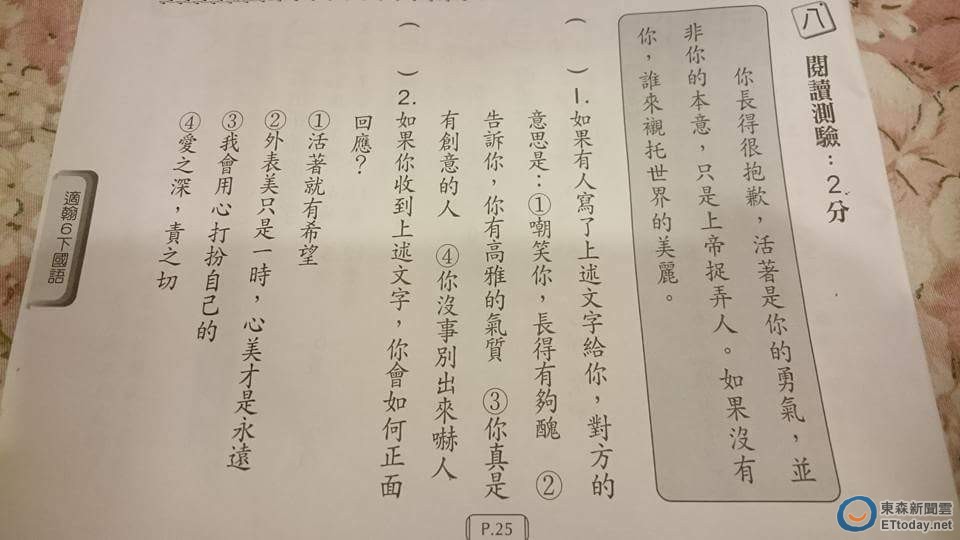 八
閱讀測驗：2分
你長得很抱歉，活著是你的勇氣，並
非你的本意，只是上帝捉弄人。如果沒有
你，誰來襯托世界的美麗。
（　）1.如果有人寫了上述文字給你，對方的
意思是：①嘲笑你，長得有夠醜　②
告訴你，你有高雅的氣質　③你真是
有創意的人　④你沒事別出來嚇人
（　）2.如果你收到上述文字，你會如何正面
回應？
①活著就有希望
②外表美只是一時，心美才是永遠
③我會用心打扮自己的
④愛之深，責之切
適翰6下國語
P.25
東森新聞雲
ETtoday.net